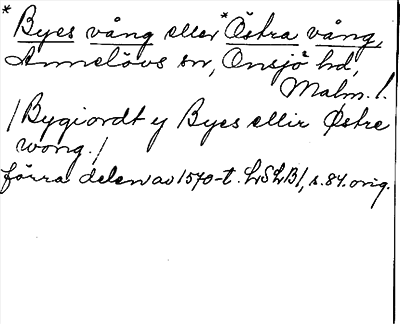 *Byes vång eller *Östra vång,
Annelövs sn, Onsjö hd,
Malm. l.
/Bygiordt y Byes ellir Østre
wong./
förra delen av 1570-t. LSLB1, s.84. orig.